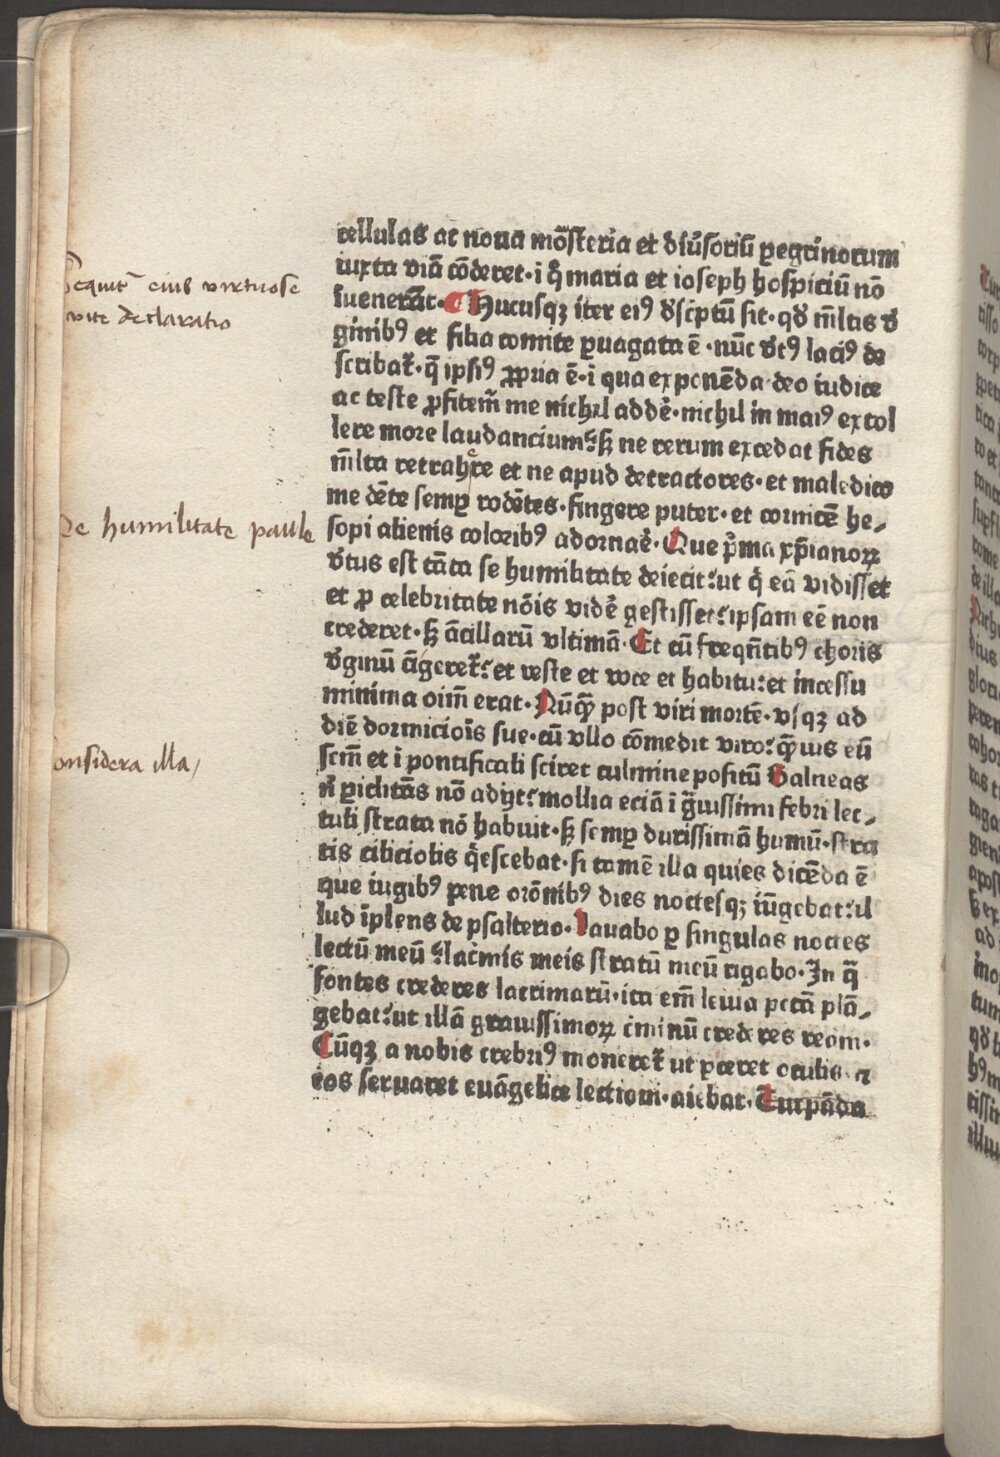 cellulas ac noua mõsteria et diũsoriũ ꝑegrinorum
iuxta viã cõderet· i q̃ maria et ioseph hospiciũ nõ
Sequit̃ eius virtuose
inuenerãt· Hucusqꝫ iter eiꝰ dʼscͥptũ sit· qdʼ m̃ltis vʼ
vite declaratio
ginibꝰ et filia comite ꝑuagata ẽ· nũc vʼtꝰ laciꝰ de
scribat̃· q̃ ipsiꝰ ꝓpria ẽ· ĩ qua exponẽda deo iudice
ac teste ꝓfitem̃ me nichil addẽ· nichil in maiꝰ extol
lere more laudancium: sꝫ ne rerum excedat fides
m̃lta retrahere et ne apud detractores· et maledico
me dẽte semꝑ rodẽtes· fingere puter· et cornicẽ he⸗
De humilitate paule
sopi alienis coloribꝰ adornaẽ· Que pͥma xp̃ianoꝝ
vʼtus est tãta se humilitate deiecit: ut qͥ eã vidisset
et ꝓ celebritate nõis videʼ gestisset: ipsam eẽ non
crederet· sꝫ ãcillarũ vltimã· Et cũ freqñtibꝰ choris
vʼginũ cĩgeret̃: et veste et voce et habitu: et incessu
minima oim̃ erat· Nũqͣꝫ post viri mortẽ· vsqꝫ ad
diẽ dormiciois sue· cũ vllo cõmedit viro: qͣꝫuis eũ
Considera illa/
scm̃ et ĩ pontificali sciret culmine positũ Balneas
nʼ ꝑiclitãs nõ adijt: mollia eciã ĩ gͣuissimi febri lec⸗
tuli strata nõ habuit· sꝫ semꝑ durissimã humũ· stra
tis ciliciolis qͥescebat· si tamẽ illa quies dicẽda ẽ
que iugibꝰ pene orõnibꝰ dies noctesqꝫ iũgebat: il
lud ĩplens de psalterio· Lauabo ꝑ singulas noctes
lectũ meũ: lacͥmis meis stratũ meũ rigabo· In qͣ
fontes crederes lacrimarũ· ita em̃ leuia pctã plã⸗
gebat: ut illã grauissimoꝝ cͥminũ crederes ream·
Cũqꝫ a nobis crebriꝰ moneret̃ ut ꝑceret oculis· ⁊
eos seruaret euãgelice lectioni· aiebat· Turpãda